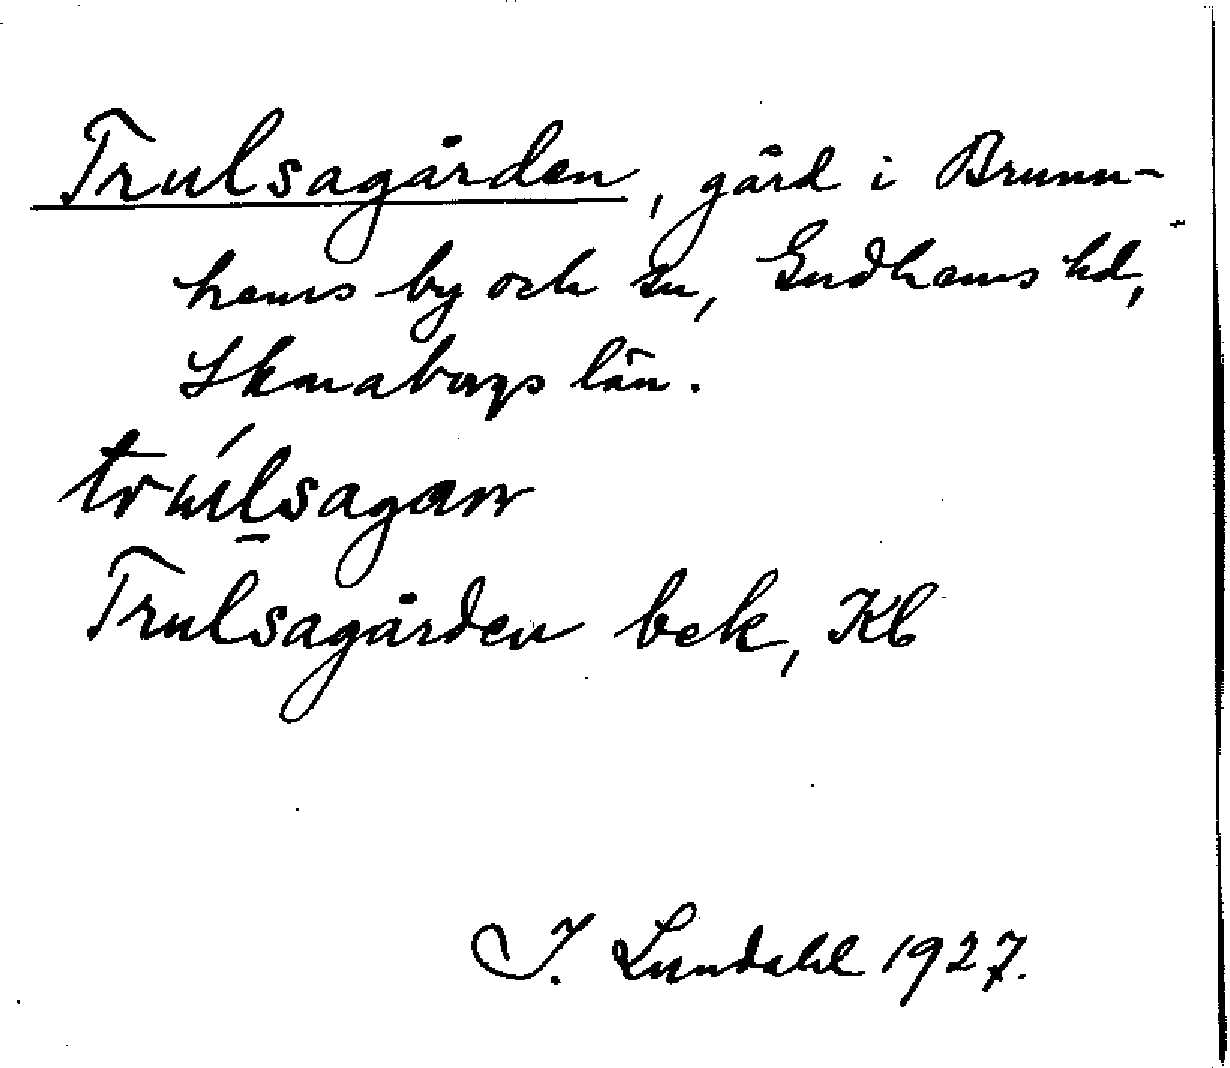 Trulsagården, gård i Brunn-
hems by och sn, Gudhems hd,
Skaraborgs län.
trúlsagarn
Trulsagården bek, Kb
I. Lundahl 1927.